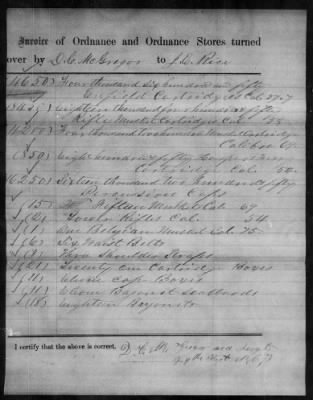 Invoice of Ordnance and Ordnance Stores turned
over by D. C. McGregor to J. E. Rice
(4650) Four thousand six hundred and fifty
Enfield Cartridges Cal. 577
Eighteen thousand four hundred fifty
Rifle Musket Cartridges Cal. 58
Four thousand two hundred Musket Cartridges
Calibre 69
(850) Eight hundred & fifty
Cartridges Cal. 50
(16250) Sixteen thousand two hundred fifty
Percussion Caps
(15) Rifled Muskets Cal. 69
(2) Two Rifles Cal. 54
(1) One Belgian Musket Cal. 75
(6) Six Waist Belts
Three Shoulder Straps
(21) Twenty one Cartridge Boxes
(11) Eleven Cap Boxes
(11) Eleven Bayonet Scabbards
(18) Eighteen Bayonets
I certify that the above is correct. D. C. Mc